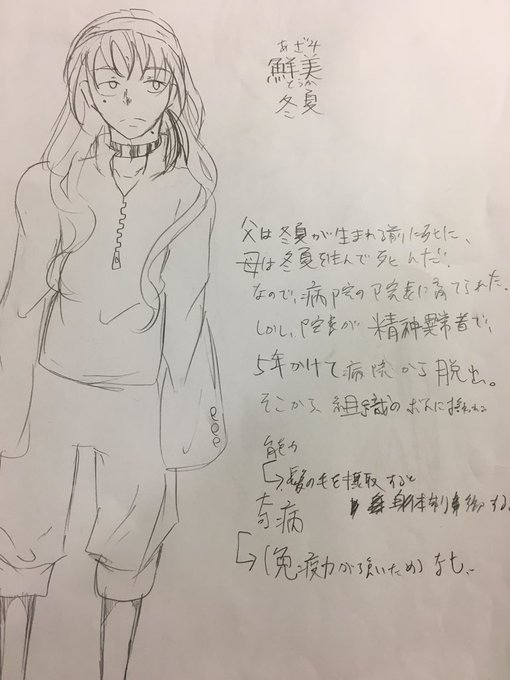 あざみ
鮮美
とうか
冬夏
父は冬夏が生まれる前に死に、
母は冬夏を生んで死んだ。
なので、病院の院長に育てられた。
しかし、院長が精神異常者で、
5年かけて病院から脱出。
そこから組織のボスに拾われる
能力
↳髪の毛を摂取すると
身体制御する。
奇病
↳(免疫力が強いため)なし。